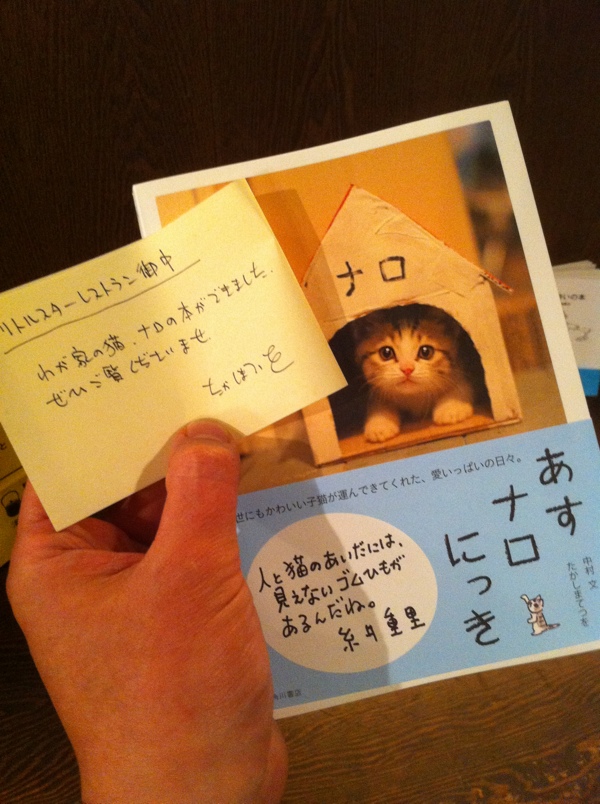 リトルスターレストラン御中
わが家の猫、ナロの本ができました.
ぜひご覧くださいませ
ナロ
世にもかわいい子猫が運んできてくれた、愛いっぱいの日々。
あす
ナロ
にっき
中村 文
たかしまてつを
人と猫のあいだには、
見えないゴムひもが
あるんだね。
糸井重里
角川書店